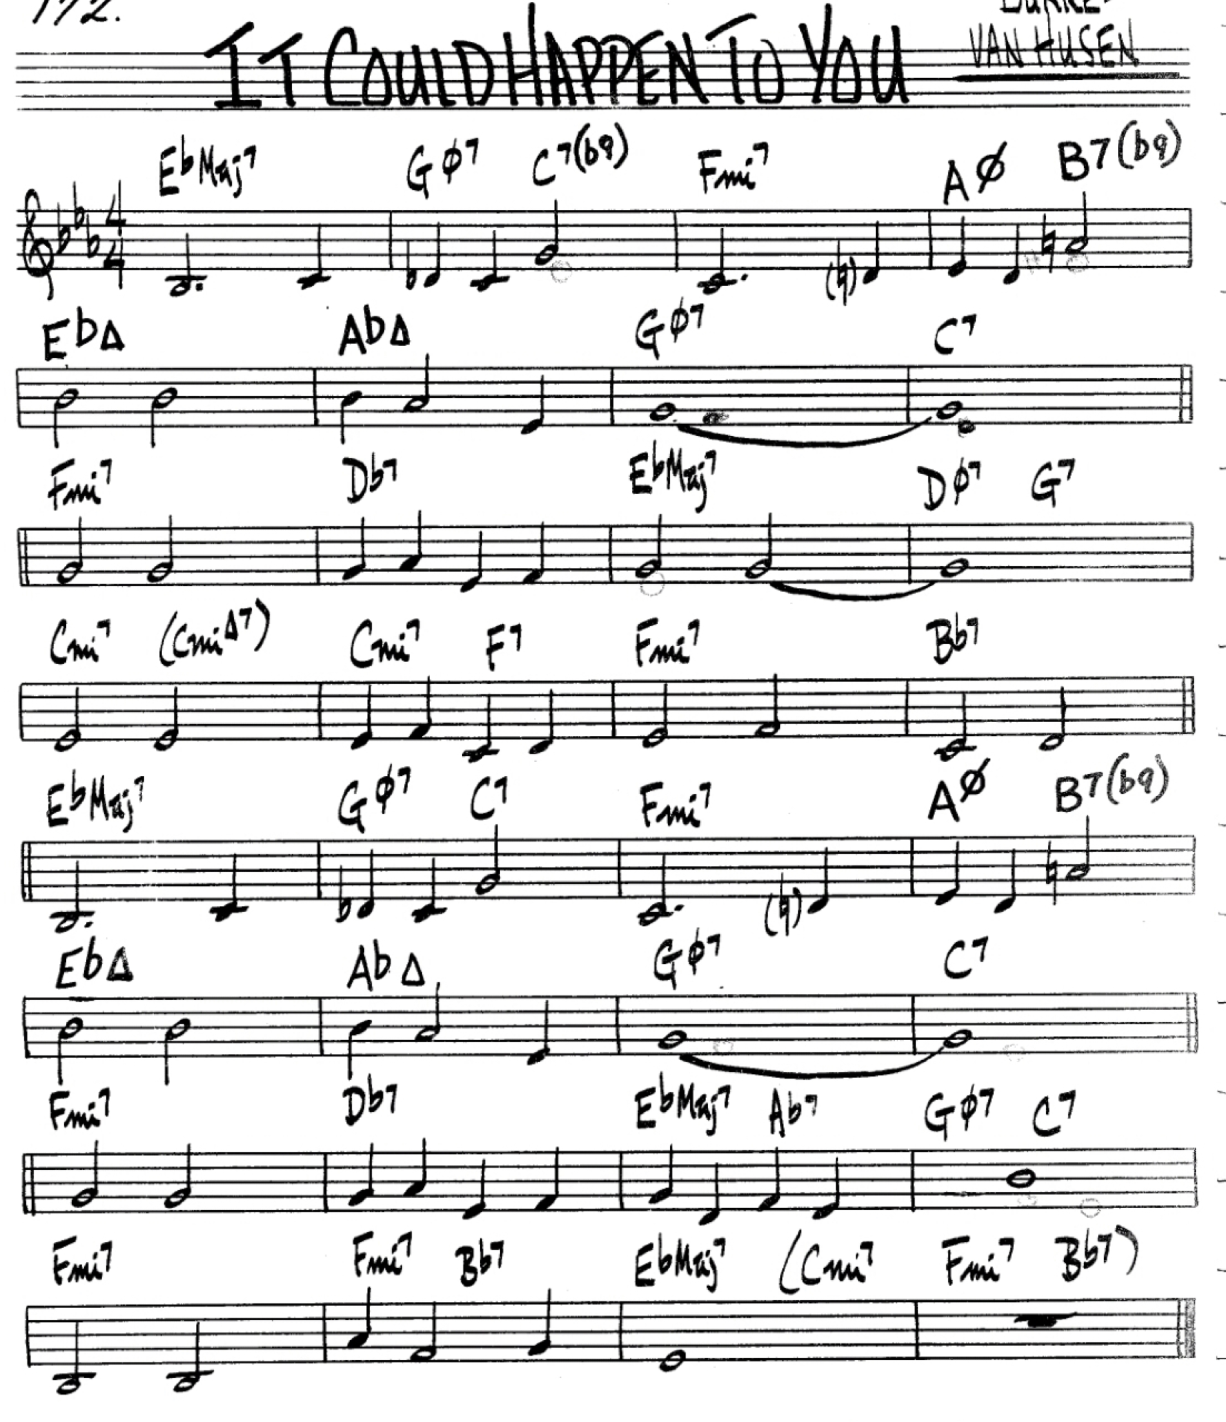 172.
IT COULD HAPPEN TO YOU
BURKE-
VAN HUSEN
EbMaj7 GØ7 C7(b9) Fmi7 AØ B7(b9)
4
4
EbΔ AbΔ GØ7 C7
Fmi7 Db7 EbMaj7 DØ7 G7
Cmi7 (CmiΔ7) Cmi7 F7 Fmi7 Bb7
EbMaj7 GØ7 C7 Fmi7 AØ B7(b9)
EbΔ AbΔ GØ7 C7
Fmi7 Db7 EbMaj7 Ab7 GØ7 C7
Fmi7 Fmi7 Bb7 EbMaj7 (Cmi7 Fmi7 Bb7)